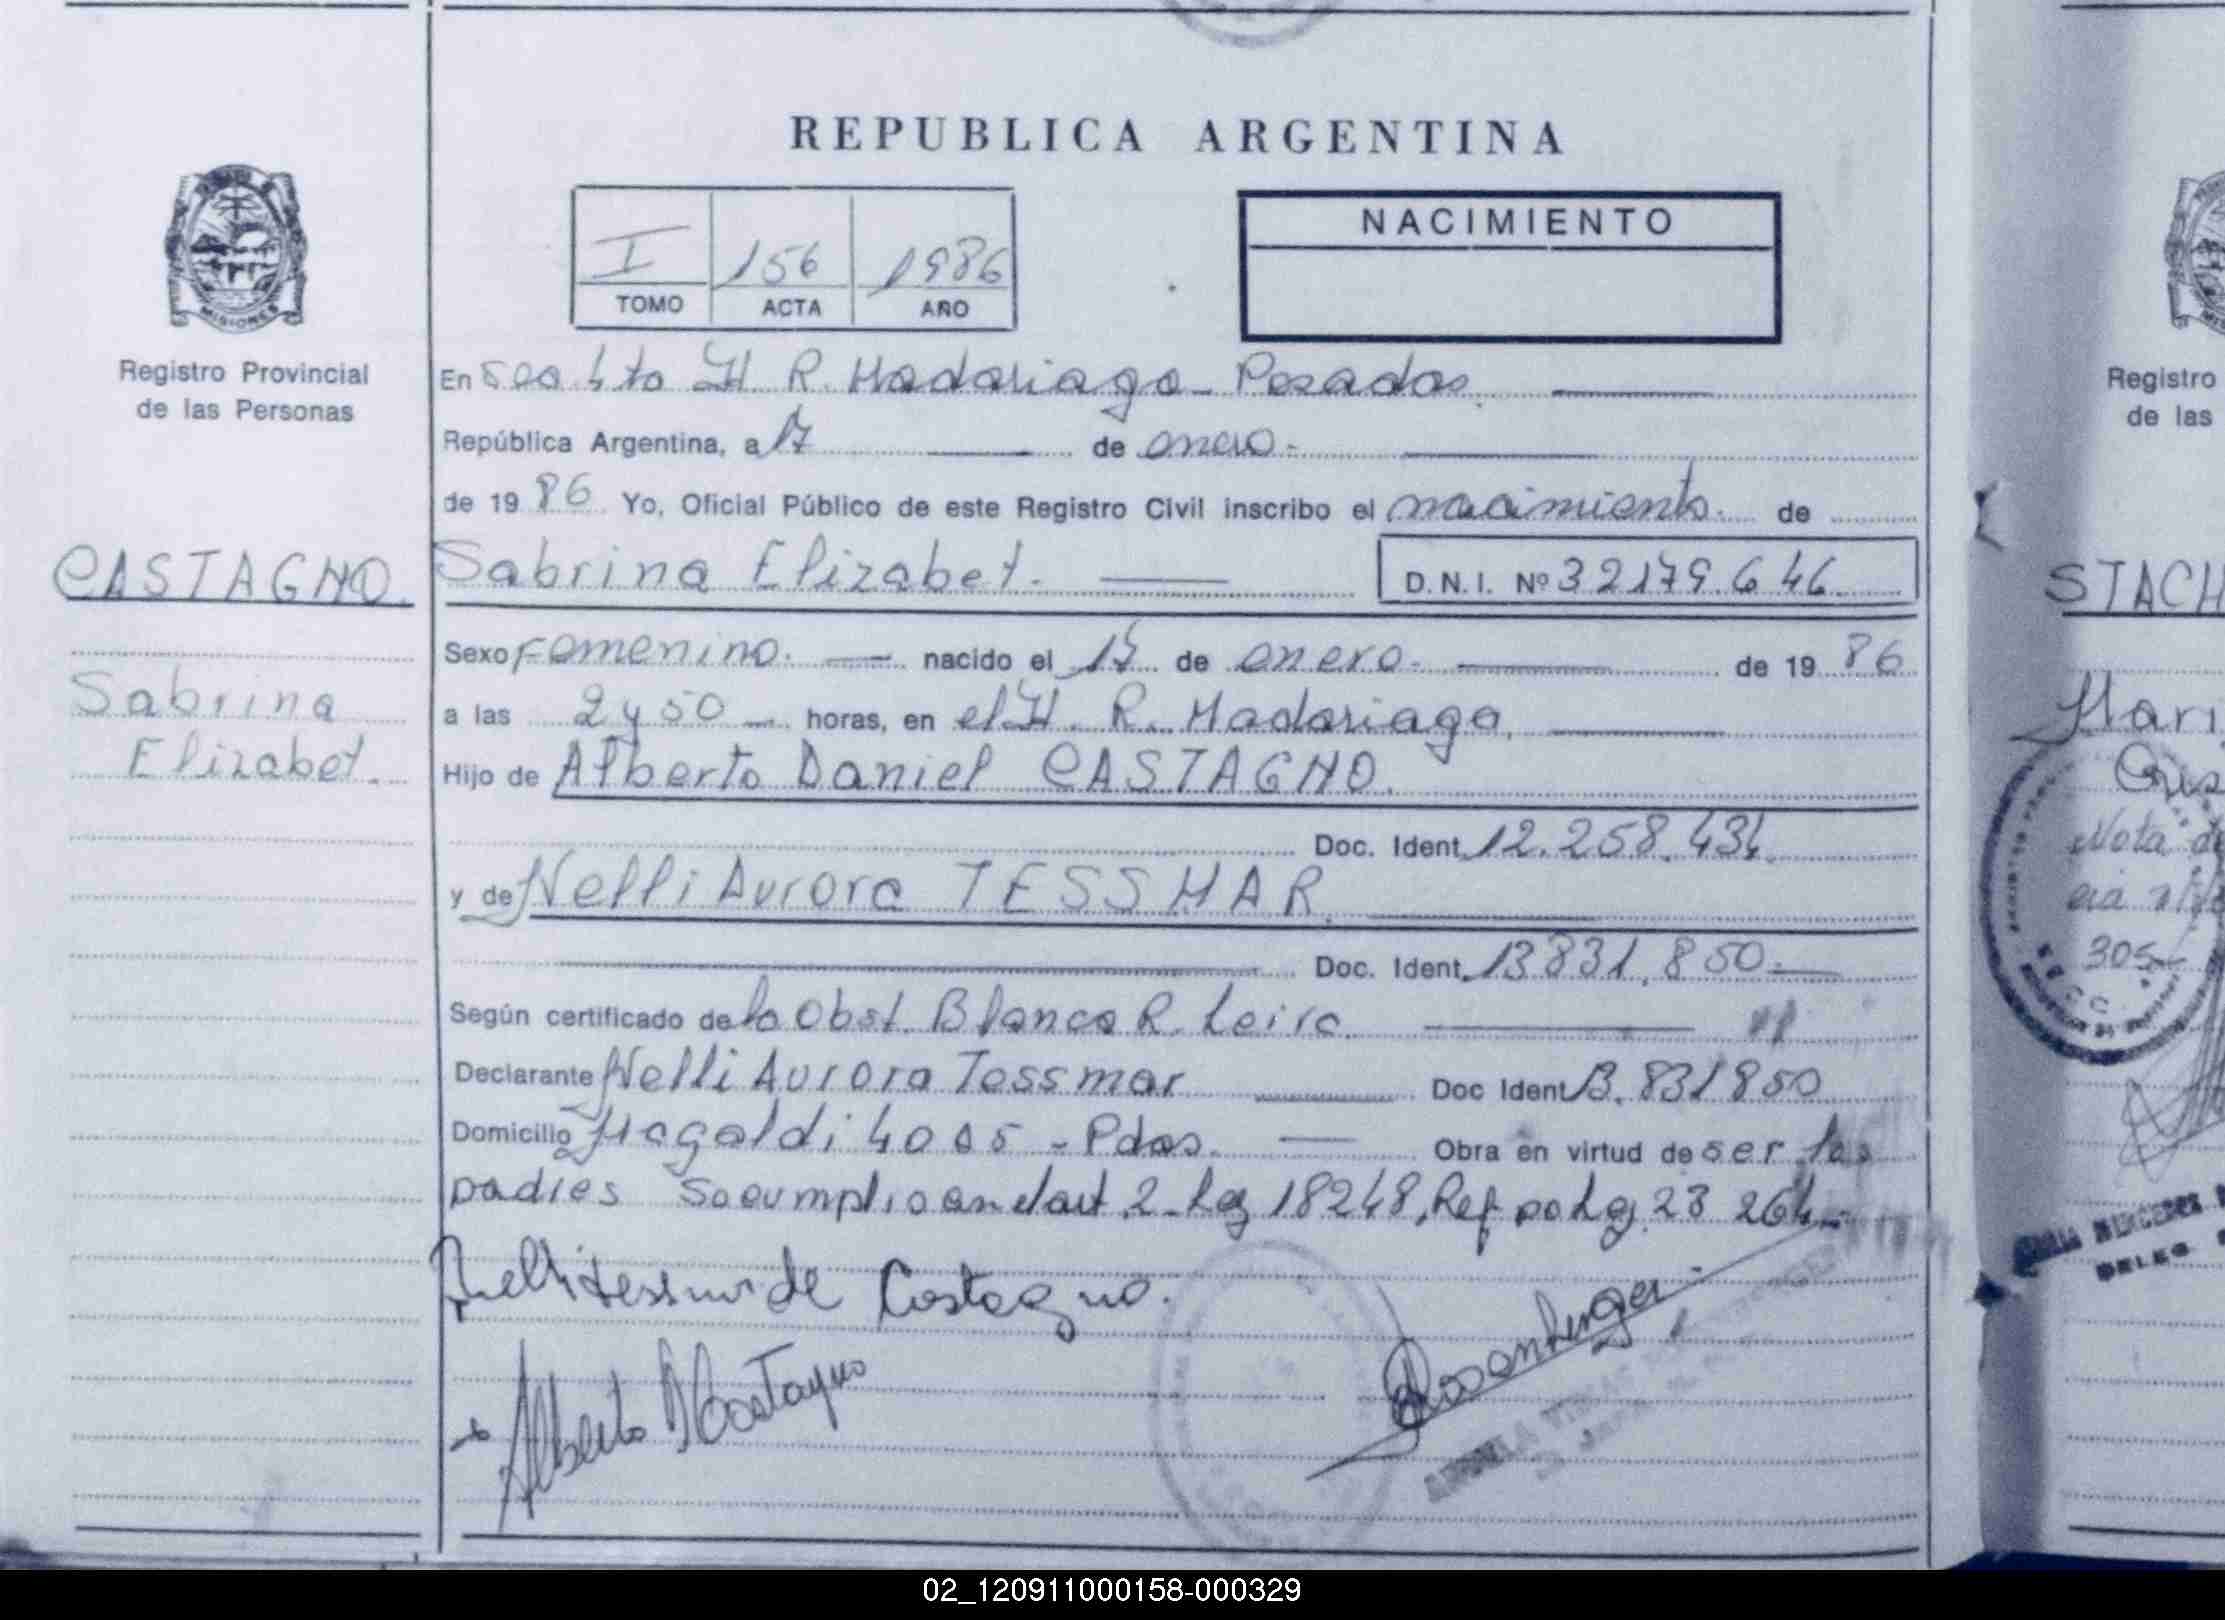 REPUBLICA ARGENTINA
MISIONES
Registro Provincial
de las Personas
I 156 1986
TOMO ACTA AÑO
NACIMIENTO
En H R. Madariaga - Posadas.
República Argentina, a 17 de enero.
de 1986 Yo, Oficial Público de este Registro Civil inscribo el nacimiento. de
CASTAGNO.
Sabrina Elizabet.
Sabrina Elizabet. D.N.I. Nº 32179.646
Sexo Femenino. nacido el 15 de enero. de 1986
a las 2 y 50 horas, en el H. R. Madariaga,
Hijo de Alberto Daniel CASTAGNO.
Doc. Ident. 12.258.434.
y de Nelli Aurora TESSMAR.
Doc. Ident. 13831.850.
Según certificado de la Obst. Blanca R. Leira.
Declarante Nelli Aurora Tessmar Doc Ident 13.831850
Domicilio Magaldi 4005 - Pdas. Obra en virtud de ser los
padres Se cumplio con el art 2 - Ley 18248, Ref po Ley 23 264
Nelli Tessmar de Castagno.
Alberto D Castagno
Registro
de las
STACH
Mari
Nota de
305
02_120911000158-000329